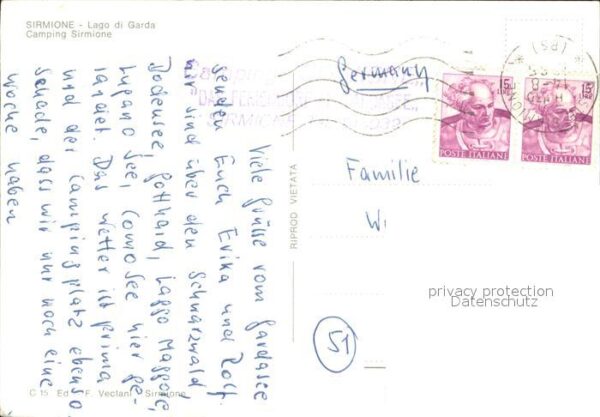 SIRMIONE - Lago di Garda
Camping Sirmione
Viele Grüsse vom Gardasee
senden Euch Erika und Rolf.
Wir sind über den Schwarzwald
Bodensee, Gotthard, Laggo Maggore,
Lugano See, Como See hier ge-
landet. Das Wetter ist prima
und der Campingplatz ebenso.
Schade, dass wir nur noch eine
Woche haben
Germany
15
POSTE ITALIANE
15
POSTE ITALIANE
(BS)
Familie
W
51
RIPROD VIETATA
privacy protection
Datenschutz
C 15 Ed. F. Veclani Sirmione